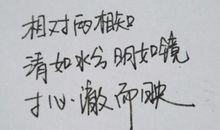 相对两相知
清如水兮明如镜
寸心澈而映